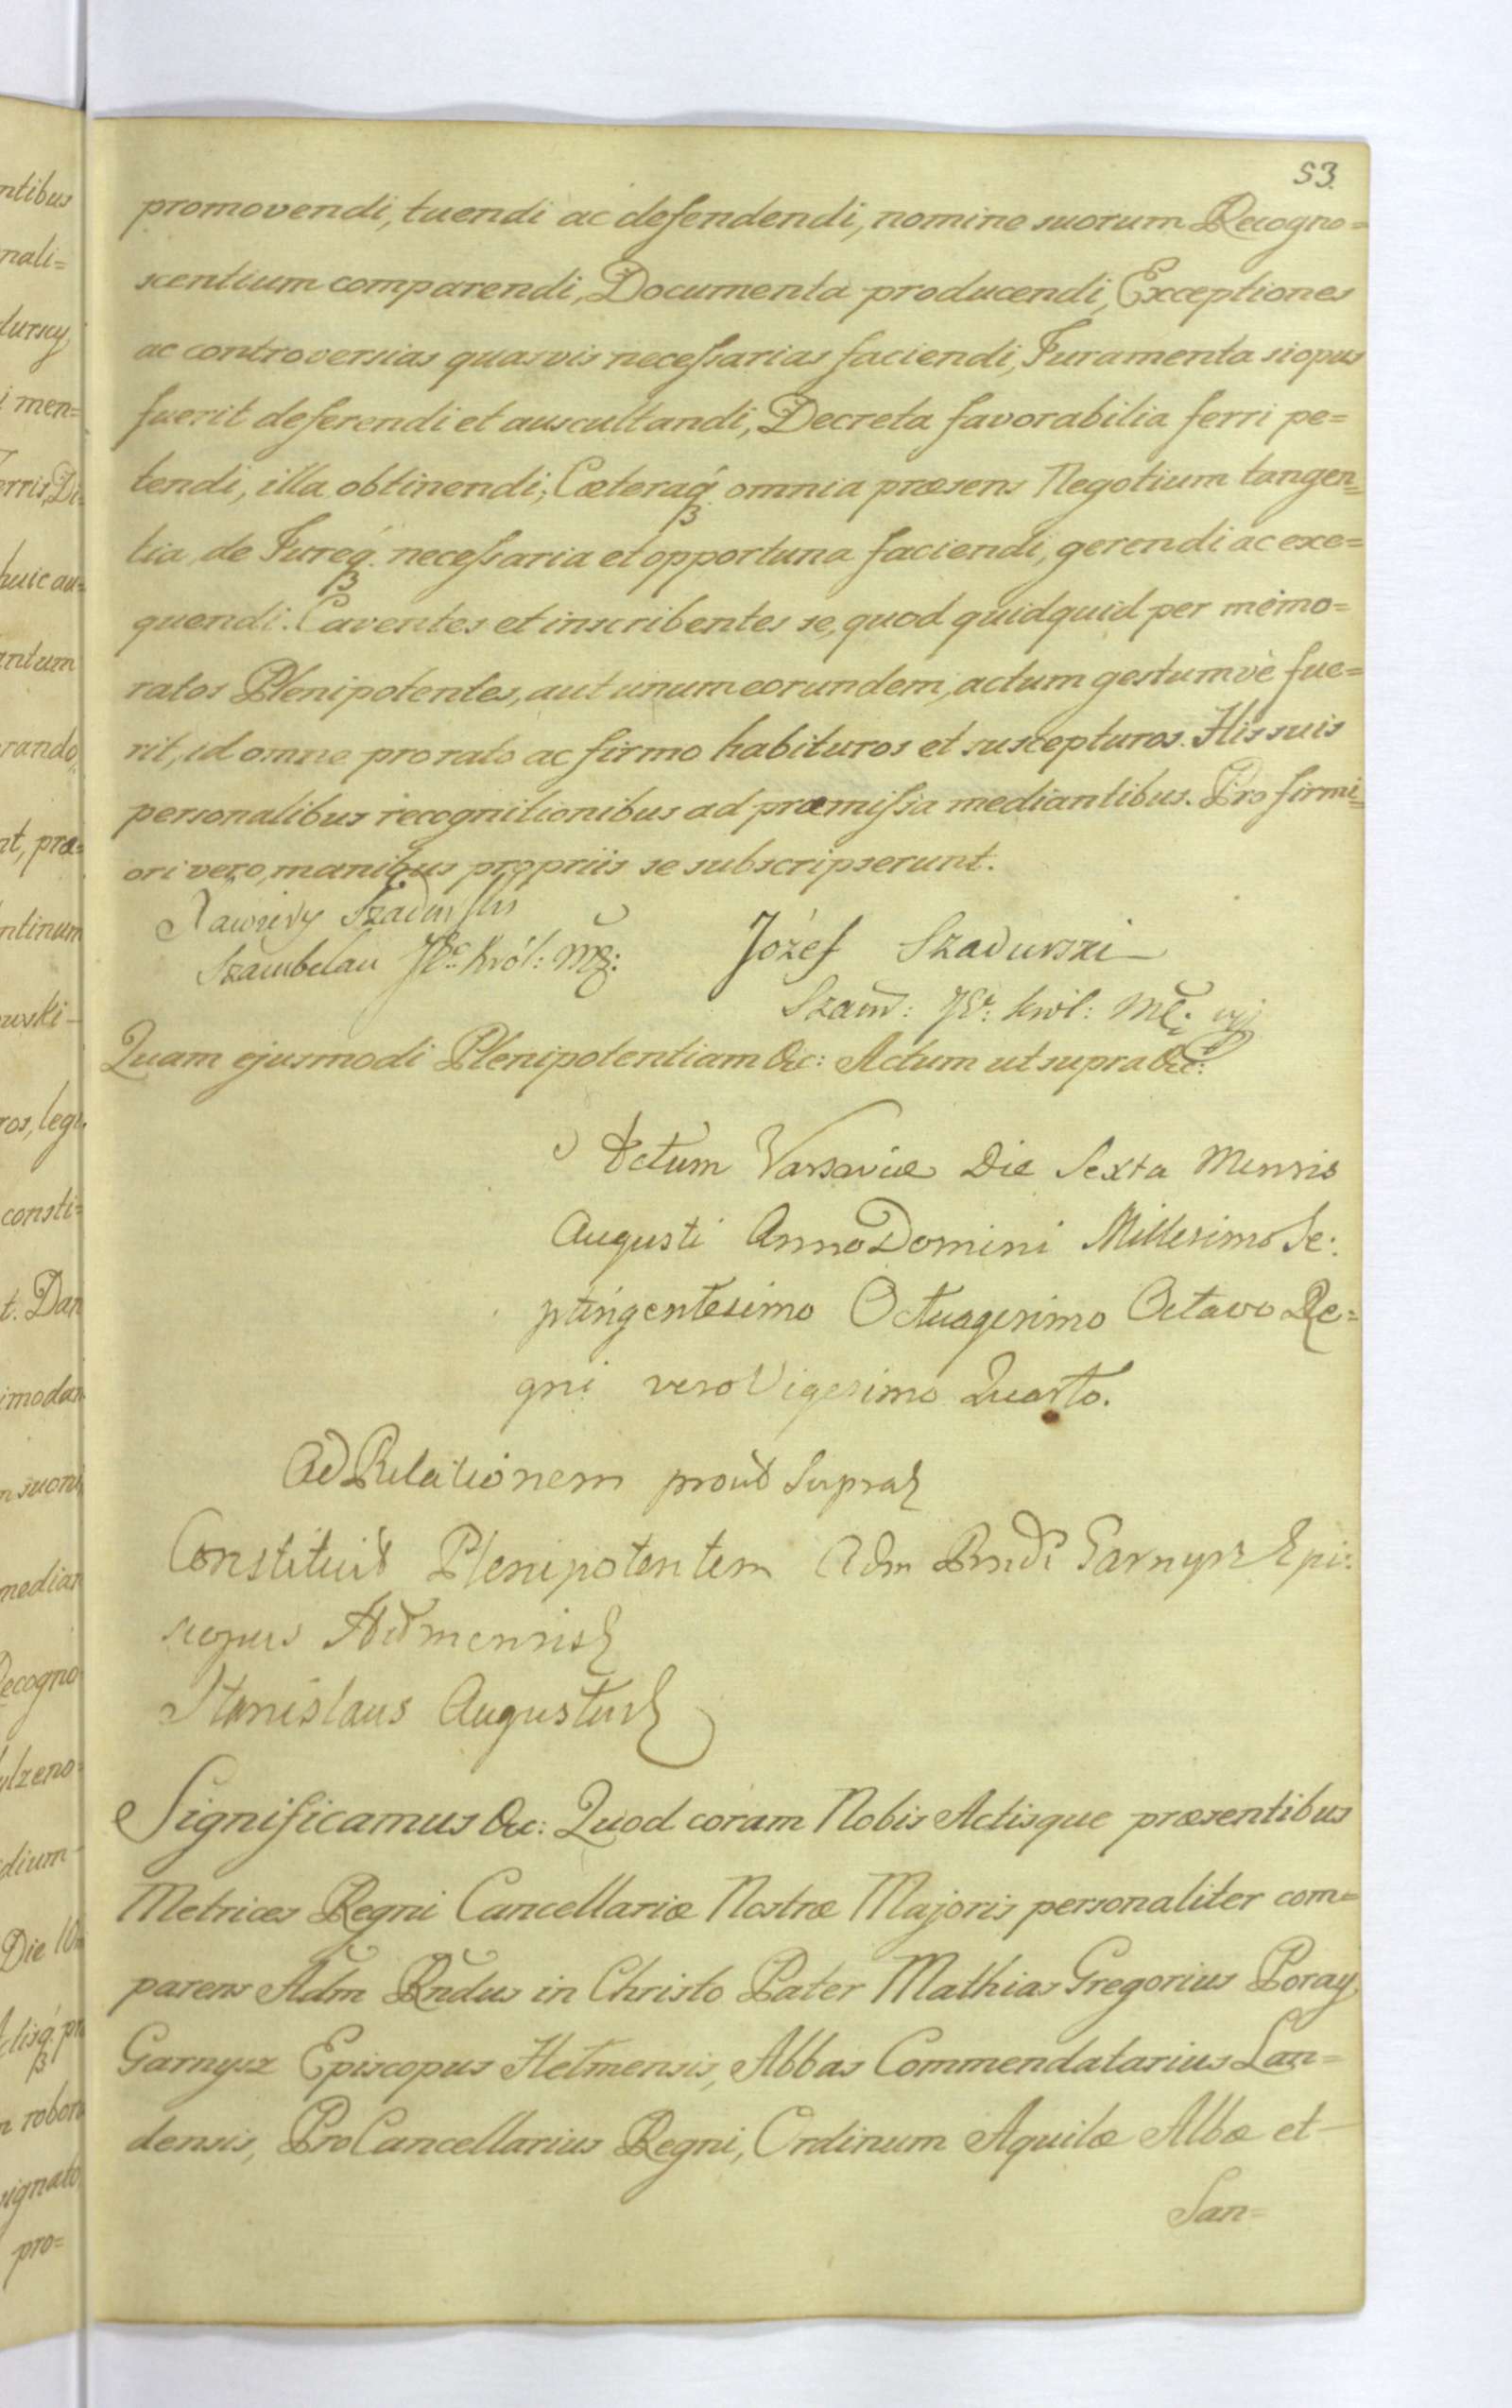 53.
promovendi, tuendi ac defendendi, nomine suorum Recogno=
scentium comparendi, Documenta producendi, Exceptiones
ac controversias quasvis necessarias faciendi, Juramenta si opus
fuerit deferendi et auscultandi, Decreta favorabilia ferri pe=
tendi, illa obtinendi; Cæteraq́ꝫ omnia præsens Negotium tangen=
tia, de Jureq́ꝫ necessaria et opportuna faciendi, gerendi ac exe=
quendi. Caventes et inscribentes se, quod quidquid per memo=
ratos Plenipotentes, aut unum eorundem, actum gestumvè fue=
rit, id omne pro rato ac firmo habituros et suscepturos. His suis
personalibus recognitionibus ad præmissa mediantibus. Pro firmi=
ori vero, manibus propriis se subscripserunt.
Xawiery Szadurski
Szambelan JKc: Król: Mć:
Józef Szadurski
Szam: JKc: Król: Mć:
Quam ejusmodi Plenipotentiam &c: Actum ut supra &c:
Actum Varsaviæ Die Sexta Mensis
Augusti Anno Domini Millesimo Se:
ptingentesimo Octuagesimo Octavo Re=
gni vero Vigesimo Quarto.
Ad Relationem prout Supra
Constituit Plenipotentem Adm Rndi Garnysz Epi:
scopus Hełmensis
Stanislaus Augustus
Significamus &c: Quod coram Nobis Actisque præsentibus
Metrices Regni Cancellariæ Nostræ Majoris personaliter com=
parens Adm̃ Rñdus in Christo Pater Mathias Gregorius Poray
Garnysz Episcopus Hełmensis, Abbas Commendatarius Lan=
densis, ProCancellarius Regni, Ordinum Aquilæ Albæ et
San=